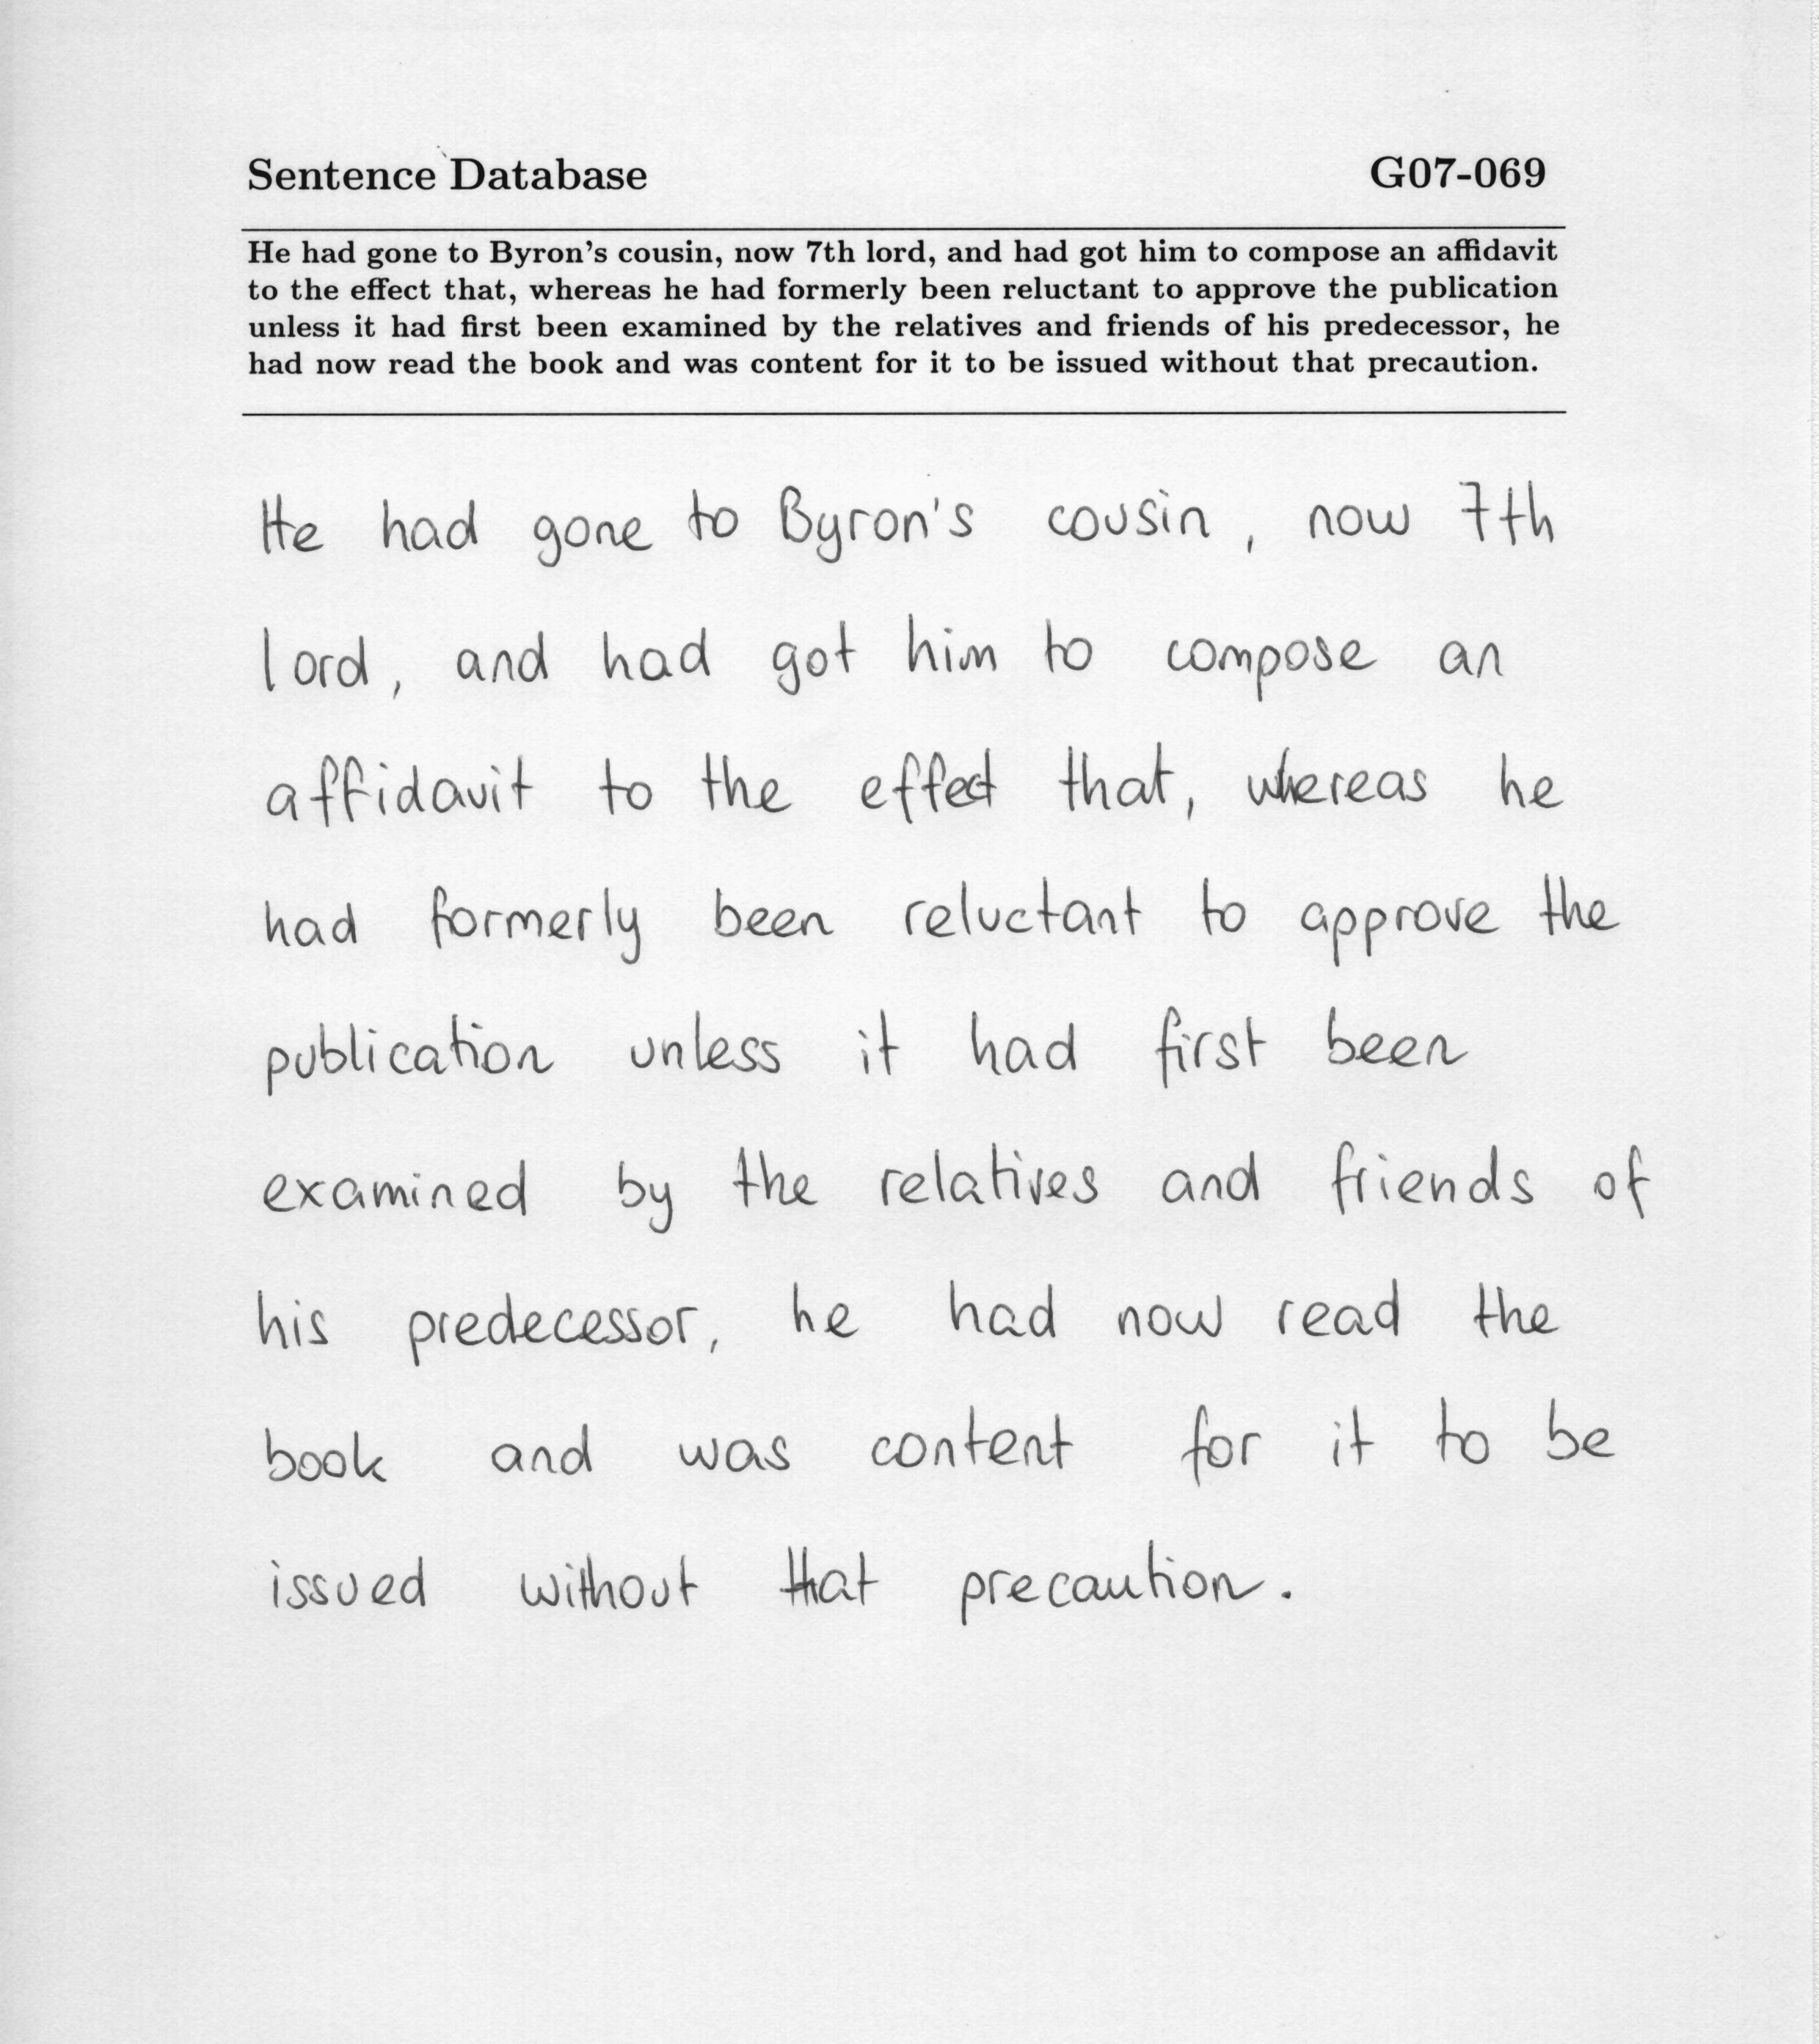 Sentence Database G07-069
He had gone to Byron's cousin, now 7th lord, and had got him to compose an affidavit
to the effect that, whereas he had formerly been reluctant to approve the publication
unless it had first been examined by the relatives and friends of his predecessor, he
had now read the book and was content for it to be issued without that precaution.
He had gone to Byron's cousin, now 7th
lord, and had got him to compose an
affidavit to the effect that, whereas he
had formerly been reluctant to approve the
publication unless it had first been
examined by the relatives and friends of
his predecessor, he had now read the
book and was content for it to be
issued without that precaution.